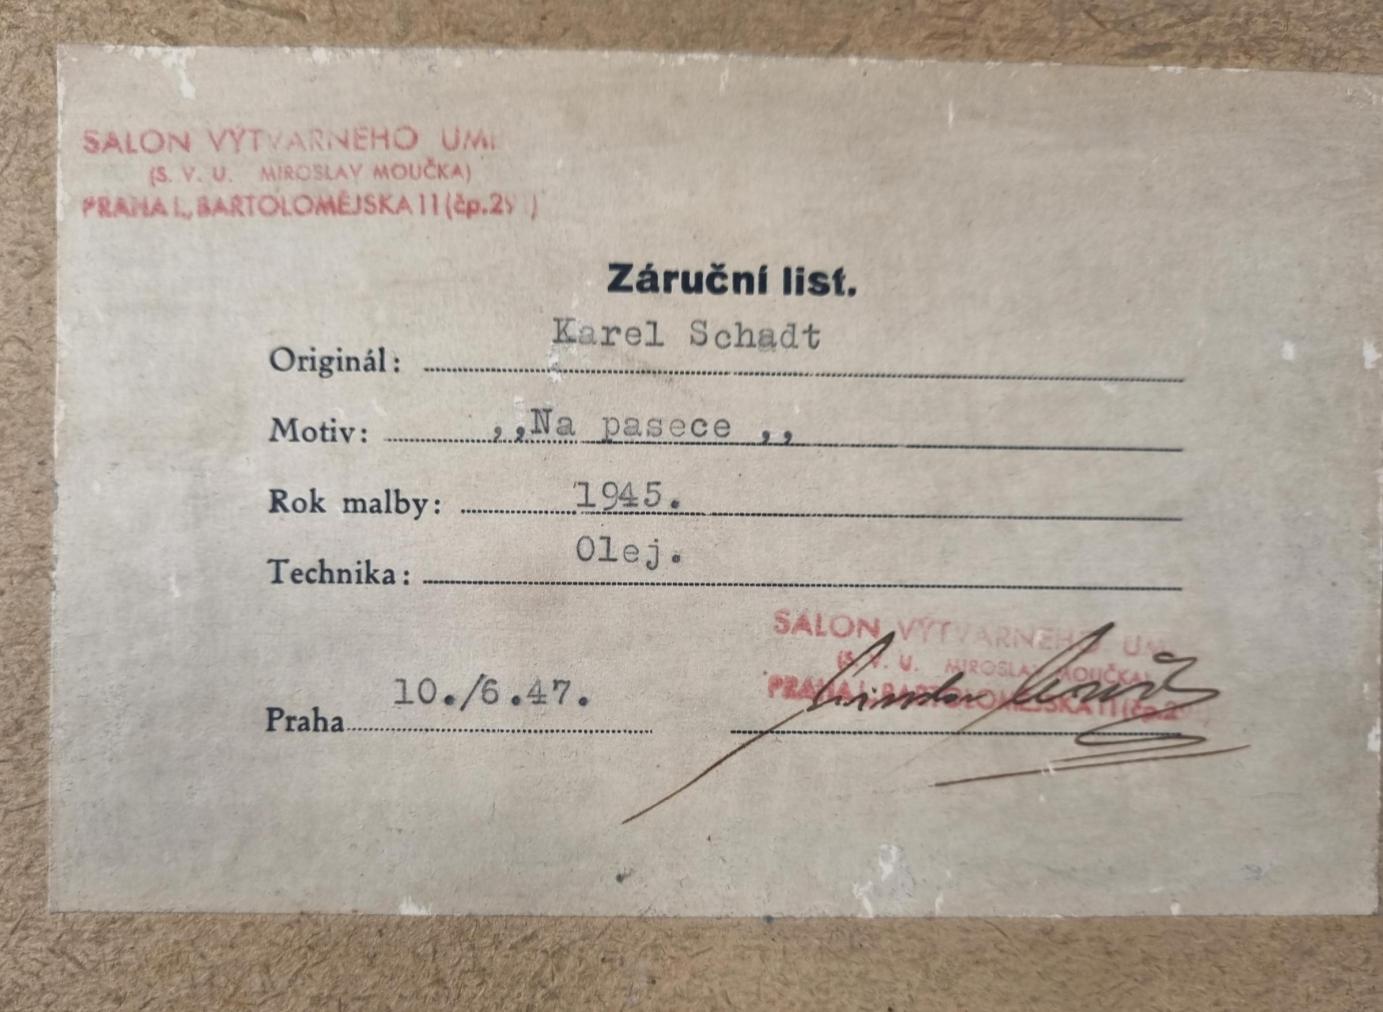 SALON VÝTVARNÉHO UMĚ
(S. V. U. MIROSLAV MOUČKA)
PRAHA I., BARTOLOMĚJSKÁ 11 (čp.29
Záruční list.
Karel Schadt
Originál:
Motiv: ,,Na pasece ,,
Rok malby: 1945.
Olej.
Technika:
SALON VÝTVARNÉHO UM
(S. V. U. MIROSLAV MOUČKA)
PRAHA I., BARTOLOMĚJSKÁ 11 (čp.2
10./6.47.
Praha